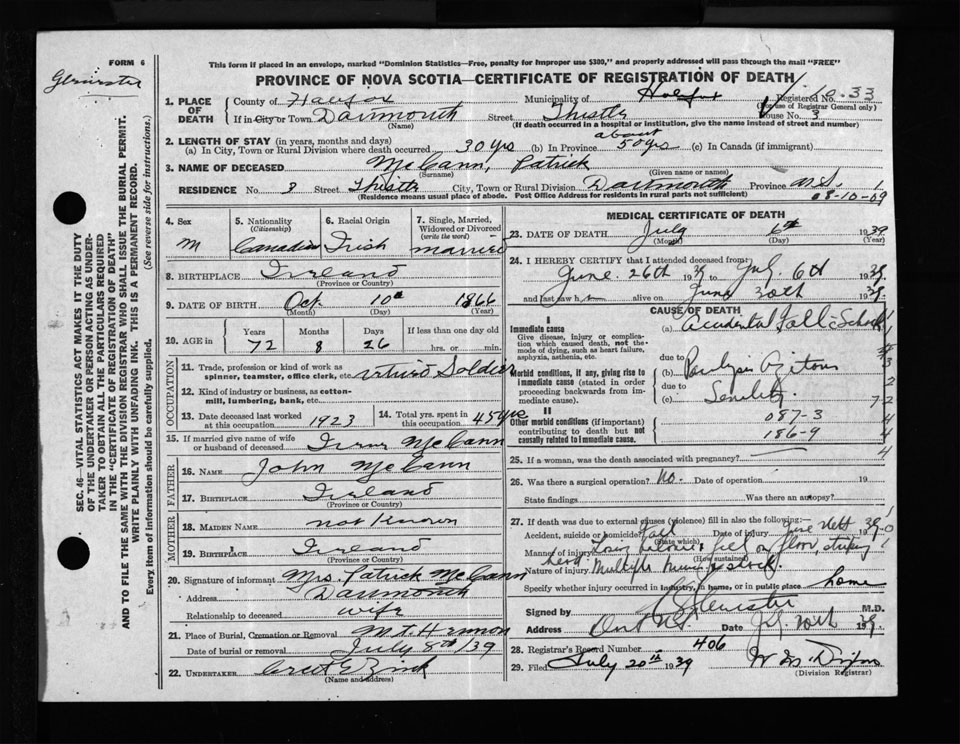 FORM 6
This form if placed in an envelope, marked "Dominion Statistics—Free, penalty for improper use $300," and properly addressed will pass through the mail "FREE"
PROVINCE OF NOVA SCOTIA—CERTIFICATE OF REGISTRATION OF DEATH
1. PLACE OF DEATH County of Halifax Municipality of Halifax Registered No. 33
(For use of Registrar General only)
If in City or Town Dartmouth Street Thistle House No. 3
(Name) (If death occurred in a hospital or institution, give the name instead of street and number)
2. LENGTH OF STAY (in years, months and days)
(a) In City, Town or Rural Division where death occurred 30 yrs (b) In Province about 50 yrs (c) In Canada (if immigrant)
3. NAME OF DECEASED McCann, Patrick
(Surname) (Given name or names)
RESIDENCE No. 3 Street Thistle City, Town or Rural Division Dartmouth Province N.S.
(Residence means usual place of abode. Post Office Address for residents in rural parts not sufficient)
08-10-09
4. Sex M
5. Nationality (Citizenship) Canadian
6. Racial Origin Irish
7. Single, Married, Widowed or Divorced (write the word) married
8. BIRTHPLACE Ireland
(Province or Country)
9. DATE OF BIRTH Oct. 10th 1866
(Month) (Day) (Year)
10. AGE in Years Months Days If less than one day old
72 8 26 hrs. or min.
OCCUPATION
11. Trade, profession or kind of work as spinner, teamster, office clerk, etc. retired Soldier
12. Kind of industry or business, as cotton-mill, lumbering, bank, etc.
13. Date deceased last worked at this occupation 1923
14. Total yrs. spent in this occupation 45 yrs
15. If married give name of wife or husband of deceased McCann
FATHER
16. NAME John McCann
17. BIRTHPLACE Ireland
(Province or Country)
MOTHER
18. MAIDEN NAME not Known
19. BIRTHPLACE Ireland
(Province or Country)
20. Signature of informant Mrs. Patrick McCann
Address Dartmouth
Relationship to deceased wife
21. Place of Burial, Cremation or Removal M.T. Hermon
Date of burial or removal July 8th/39
22. UNDERTAKER Zink
(Name and address)
MEDICAL CERTIFICATE OF DEATH
23. DATE OF DEATH July 6th 1939
(Month) (Day) (Year)
24. I HEREBY CERTIFY that I attended deceased from:
June 26th 1939 to July 6th 1939.
and last saw h alive on June 30th 1939.
CAUSE OF DEATH
I
Immediate cause
Give disease, injury or complication which caused death, not the mode of dying, such as heart failure, asphyxia, asthenia, etc.
(a) Accidental Fall - Shock
due to
Morbid conditions, if any, giving rise to immediate cause (stated in order proceeding backwards from immediate cause).
(b) Paralysis Agitans
due to
(c) Senility
72
II
Other morbid conditions (if important) contributing to death but not causally related to immediate cause.
087-3
186-9
25. If a woman, was the death associated with pregnancy?
26. Was there a surgical operation? No. Date of operation 19
State findings Was there an autopsy?
27. If death was due to external causes (violence) fill in also the following:—
Accident, suicide or homicide? Fall Date of injury June 1939
(State which)
Manner of injury Losing balance & fell on floor, striking head
(How sustained)
Nature of injury Multiple & shock.
Specify whether injury occurred in industry, in home, or in public place home
Signed by M.D.
Address Dart N.S. Date July 20th 1939.
28. Registrar's Record Number 406
29. Filed July 20th 1939
(Division Registrar)
SEC. 46—VITAL STATISTICS ACT MAKES IT THE DUTY
OF THE UNDERTAKER OR PERSON ACTING AS UNDER-
TAKER TO OBTAIN ALL THE PARTICULARS REQUIRED
IN THE "CERTIFICATE OF REGISTRATION OF DEATH"
AND TO FILE THE SAME WITH THE DIVISION REGISTRAR WHO SHALL ISSUE THE BURIAL PERMIT.
WRITE PLAINLY WITH UNFADING INK. THIS IS A PERMANENT RECORD.
Every item of information should be carefully supplied. (See reverse side for instructions.)